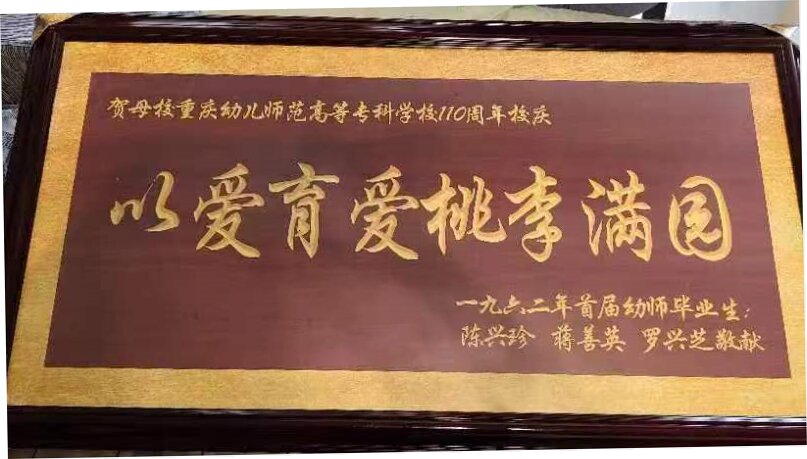 贺母校重庆幼儿师范高等专科学校110周年校庆
以爱育爱桃李满园
一九六二年首届幼师毕业生:
陈兴珍 蒋善英 罗兴芝敬献